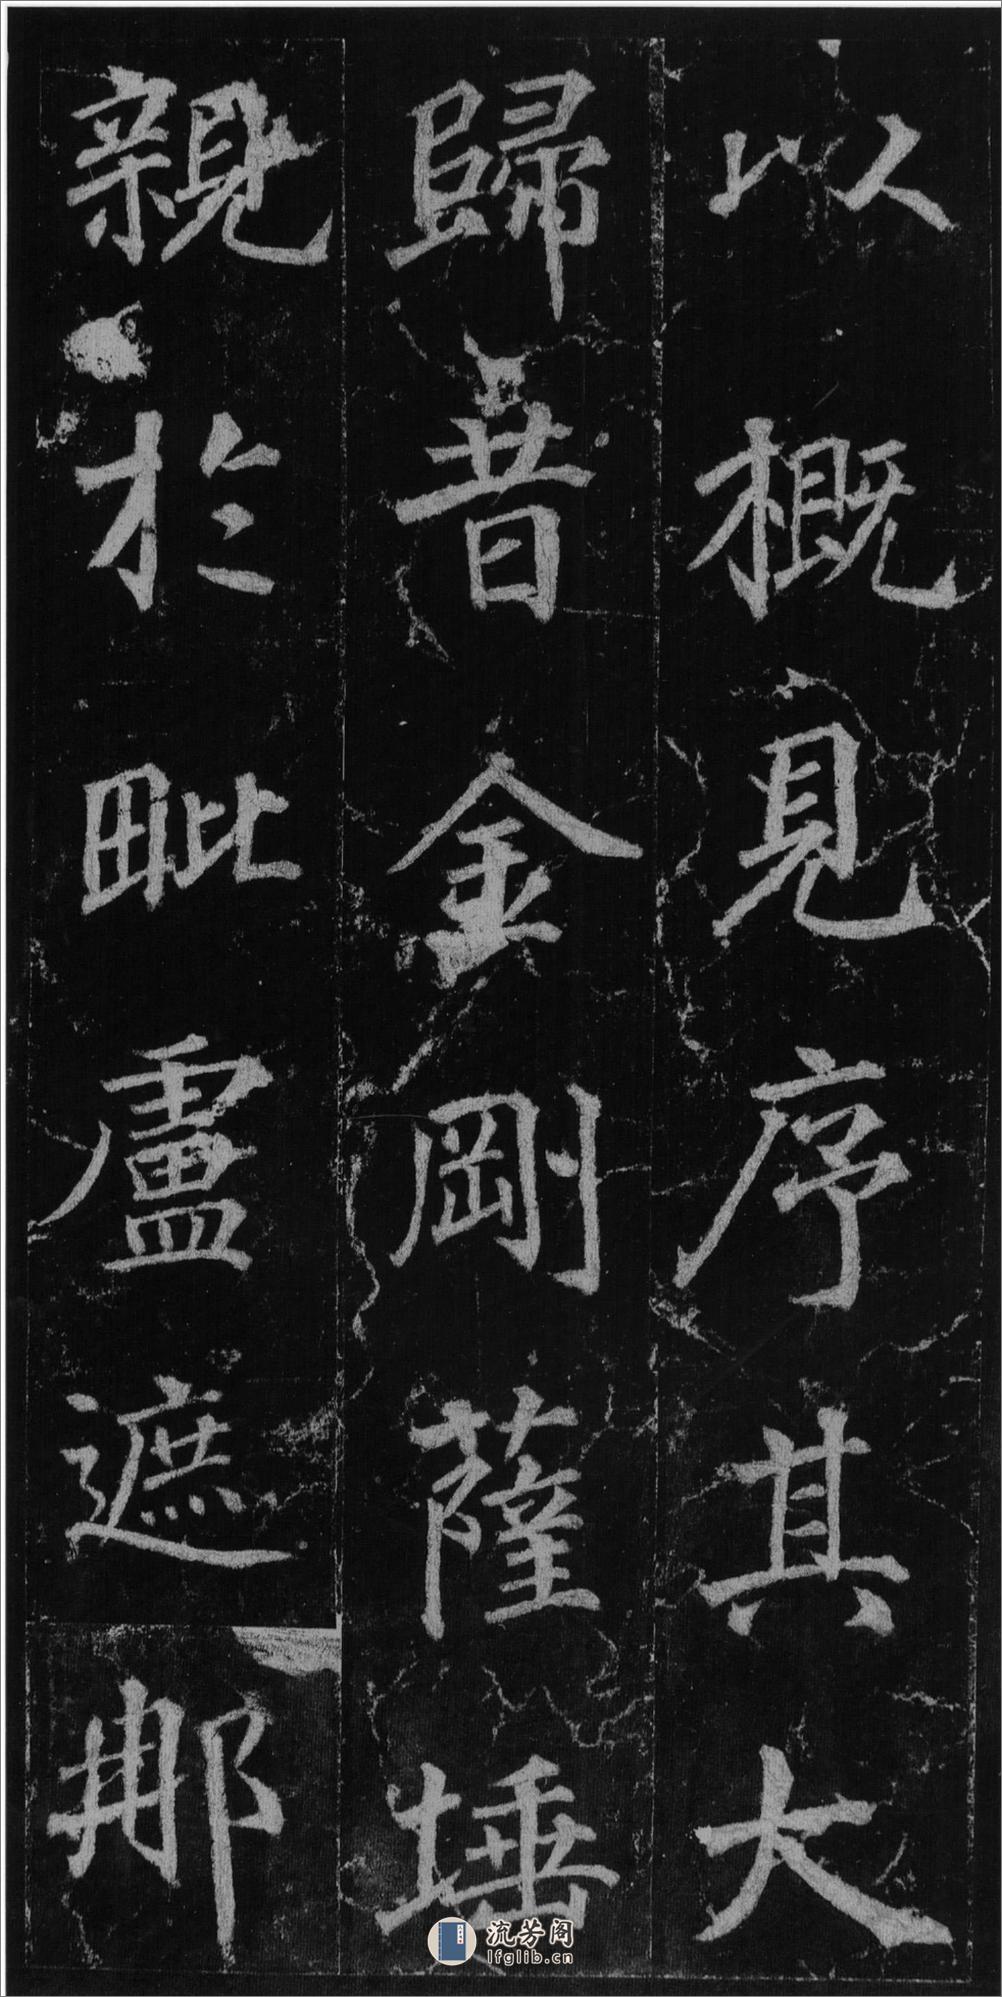 以概見序其大
歸昔金剛薩埵
親於毗盧遮那
流芳阁
lfglib.cn